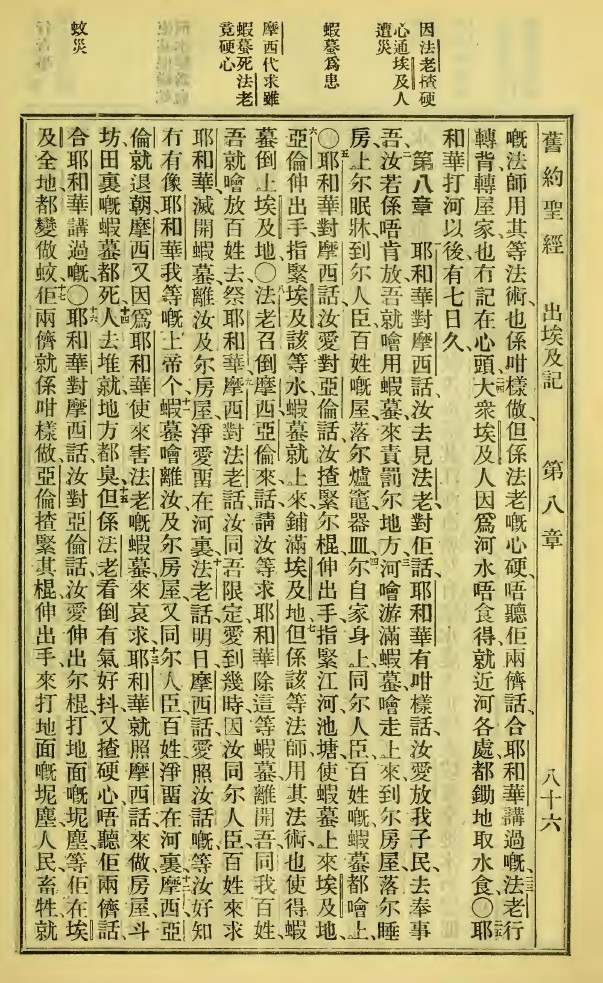 因法老揸硬
心通埃及人
遭災
蝦蟇爲患
摩西代求雖
蝦蟇死法老
竟硬心
蚊災
舊約聖經 出埃及記 第八章 八十六
嘅法師用其等法術也係咁樣做但係法老嘅心硬唔聽佢兩儕話、合耶和華講過嘅、法老行
轉背轉屋家也冇記在心頭、大衆埃及人因爲河水唔食得、就近河各處都鋤地取水食、〇耶
和華打河以後有七日久、
第八章 耶和華對摩西話、汝去見法老對佢話、耶和華有咁樣話、汝愛放我子民去奉事
吾、汝若係唔肯放、吾就噲用蝦蟇來責罰尔地方、河噲游滿蝦蟇、噲走上來到尔房屋、落尔睡
房、上尔眠牀、到尔人臣百姓嘅屋、落尔爐竈器皿、尔自家身上、同尔人臣百姓嘅、蝦蟇都噲上、
〇耶和華對摩西話、汝愛對亞倫話、汝揸緊尔棍伸出手、指緊江河池塘、使蝦蟇上來埃及地、
亞倫伸出手指緊埃及該等水、蝦蟇就上來鋪滿埃及地、但係該等法師用其法術也使得蝦
蟇倒上埃及地、〇法老召倒摩西亞倫來話、請汝等求耶和華除這等蝦蟇離開吾同我百姓、
吾就噲放百姓去祭耶和華、摩西對法老話、汝同吾限定愛到幾時、因汝同尔人臣百姓來求
耶和華滅開蝦蟇離汝及尔房屋、淨愛畱在河裏、法老話、明日、摩西話、愛照汝話嘅等汝好知
冇有像耶和華我等嘅上帝个、蝦蟇噲離汝及尔房屋、又同尔人臣百姓淨畱在河裏、摩西亞
倫就退朝、摩西又因爲耶和華使來害法老嘅蝦蟇來哀求、耶和華就照摩西話來做、房屋斗
坊田裏嘅蝦蟇都死、人去堆就地方都臭、但係法老看倒有氣好抖、又揸硬心唔聽佢兩儕話、
合耶和華講過嘅、〇耶和華對摩西話、汝對亞倫話、汝愛伸出尔棍打地面嘅坭塵、等佢在埃
及全地都變做蚊、佢兩儕就係咁樣做、亞倫揸緊其棍伸出手來打地面嘅坭塵、人民畜牲就